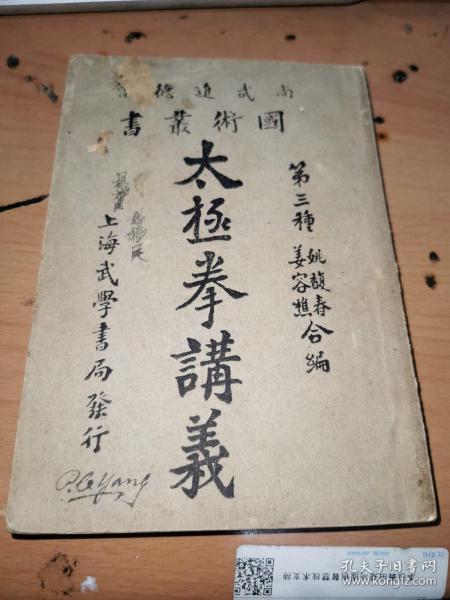 尚武進德會
國術叢書
第三種
姚馥春
姜容樵
合編
太極拳講義
上海武學書局發行
孔夫子旧书网